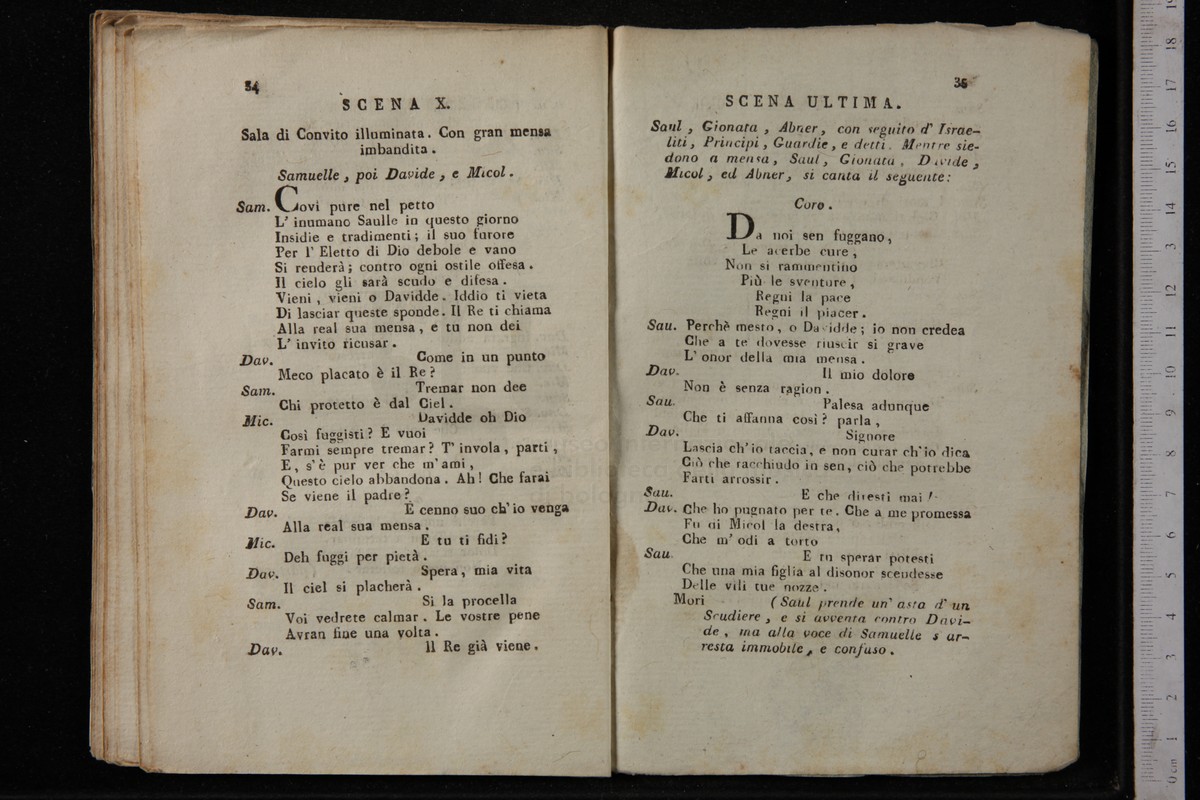 34
SCENA X.
Sala di Convito illuminata. Con gran mensa
imbandita.
Samuelle, poi Davide, e Micol.
Sam. Covi pure nel petto
L' inumano Saulle in questo giorno
Insidie e tradimenti; il suo furore
Per l' Eletto di Dio debole e vano
Si renderà; contro ogni ostile offesa.
Il cielo gli sarà scudo e difesa.
Vieni, vieni o Davidde. Iddio ti vieta
Di lasciar queste sponde. Il Re ti chiama
Alla real sua mensa, e tu non dei
L' invito ricusar.
Dav. Come in un punto
Meco placato è il Re?
Sam. Tremar non dee
Chi protetto è dal Ciel.
Mic. Davidde oh Dio
Così fuggisti? E vuoi
Farmi sempre tremar? T' invola, parti,
E, s'è pur ver che m' ami,
Questo cielo abbandona. Ah! Che farai
Se viene il padre?
Dav. E cenno suo ch' io venga
Alla real sua mensa.
Mic. E tu ti fidi?
Deh fuggi per pietà.
Dav. Spera, mia vita
Il ciel si placherà.
Sam. Si la procella
Voi vedrete calmar. Le vostre pene
Avran fine una volta.
Dav. Il Re già viene.
35
SCENA ULTIMA.
Saul, Gionata, Abner, con seguito d' Israe-
liti, Principi, Guardie, e detti. Mentre sie-
dono a mensa, Saul, Gionata, Davide,
Micol, ed Abner, si canta il seguente:
Coro.
Da noi sen fuggano,
Le acerbe cure,
Non si rammentino
Più le sventure,
Regni la pace
Regni il piacer.
Sau. Perchè mesto, o Davidde; io non credea
Che a te dovesse riuscir si grave
L' onor della mia mensa.
Dav. Il mio dolore
Non è senza ragion.
Sau. Palesa adunque
Che ti affanna così? parla,
Dav. Signore
Lascia ch' io taccia, e non curar ch' io dica
Ciò che racchiudo in sen, ciò che potrebbe
Farti arrossir.
Sau. E che diresti mai!
Dav. Che ho pugnato per te. Che a me promessa
Fu di Micol la destra,
Che m' odi a torto
Sau. E tu sperar potesti
Che una mia figlia al disonor scendesse
Delle vili tue nozze.
Mori (Saul prende un' asta d' un
Scudiere, e si avventa contro Davi-
de, ma alla voce di Samuelle s' ar-
resta immobile, e confuso.
0 cm 1 2 3 4 5 6 7 8 9 10 11 12 13 14 15 16 17 18